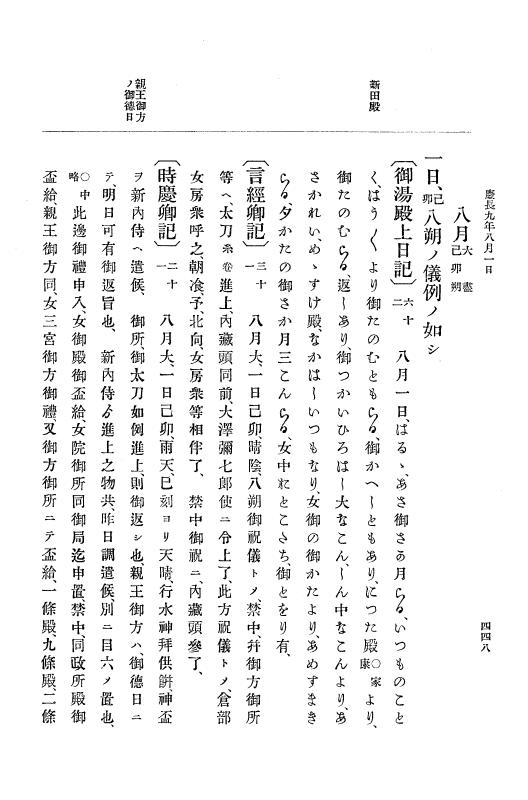 慶長九年八月一日
四四八
八月大盡
己卯朔
一日、己卯八朔ノ儀例ノ如シ
〔御湯殿上日記〕六十二 八月一日、はるゝ、あさ御さか月まいる、いつものこと
く、はう〳〵より御たのむともまいる、御かへしともあり、につた殿○家康より、
御たのむまいる、返しあり、御つかいひろはし大なこん、しん中なこんより、あ
さかれいめゝすけ殿、なかはしいつもなり、女御の御かたより、あめすまき
まいる、夕かたの御さか月三こんまいる、女中おとこたち、御とをり有、
〔言經卿記〕三十一 八月大、一日己卯、晴陰、八朔御祝儀トノ、禁中、幷御方御所
等へ、太刀糸卷進上、內藏頭同前、大澤彌七郎使ニ令上了、此方祝儀トノ、倉部
女房衆呼之、朝飡予、北向、女房衆等相伴了、 禁中御祝ニ、內藏頭參了、
〔時慶卿記〕二十一 八月大、一日己卯、雨天、巳刻ヨリ天晴、行水神拜供餠、神盃
ヲ新內侍へ遣候、 御所、御太刀如例進上、則御返シ也、親王御方ハ、御德日ニ
テ、明日可有御返旨也、 新內侍ゟ進上之物共、昨日調遣候、別ニ目六ノ置也、
○中略 此邊御禮申入、女御殿御盃給、女院御所同御局迄申置、禁中、同政所殿御
盃給、親王御方同、女三宮御方御禮、又御方御所ニテ盃給、一條殿、九條殿、二條
新田殿
親王御方
ノ御德日